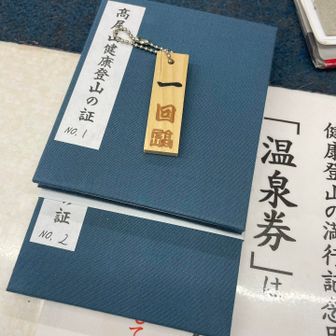 髙尾山健康登山の証
NO.1
一回
証
NO.2
健康登山の満行記念
「温泉券」は
て